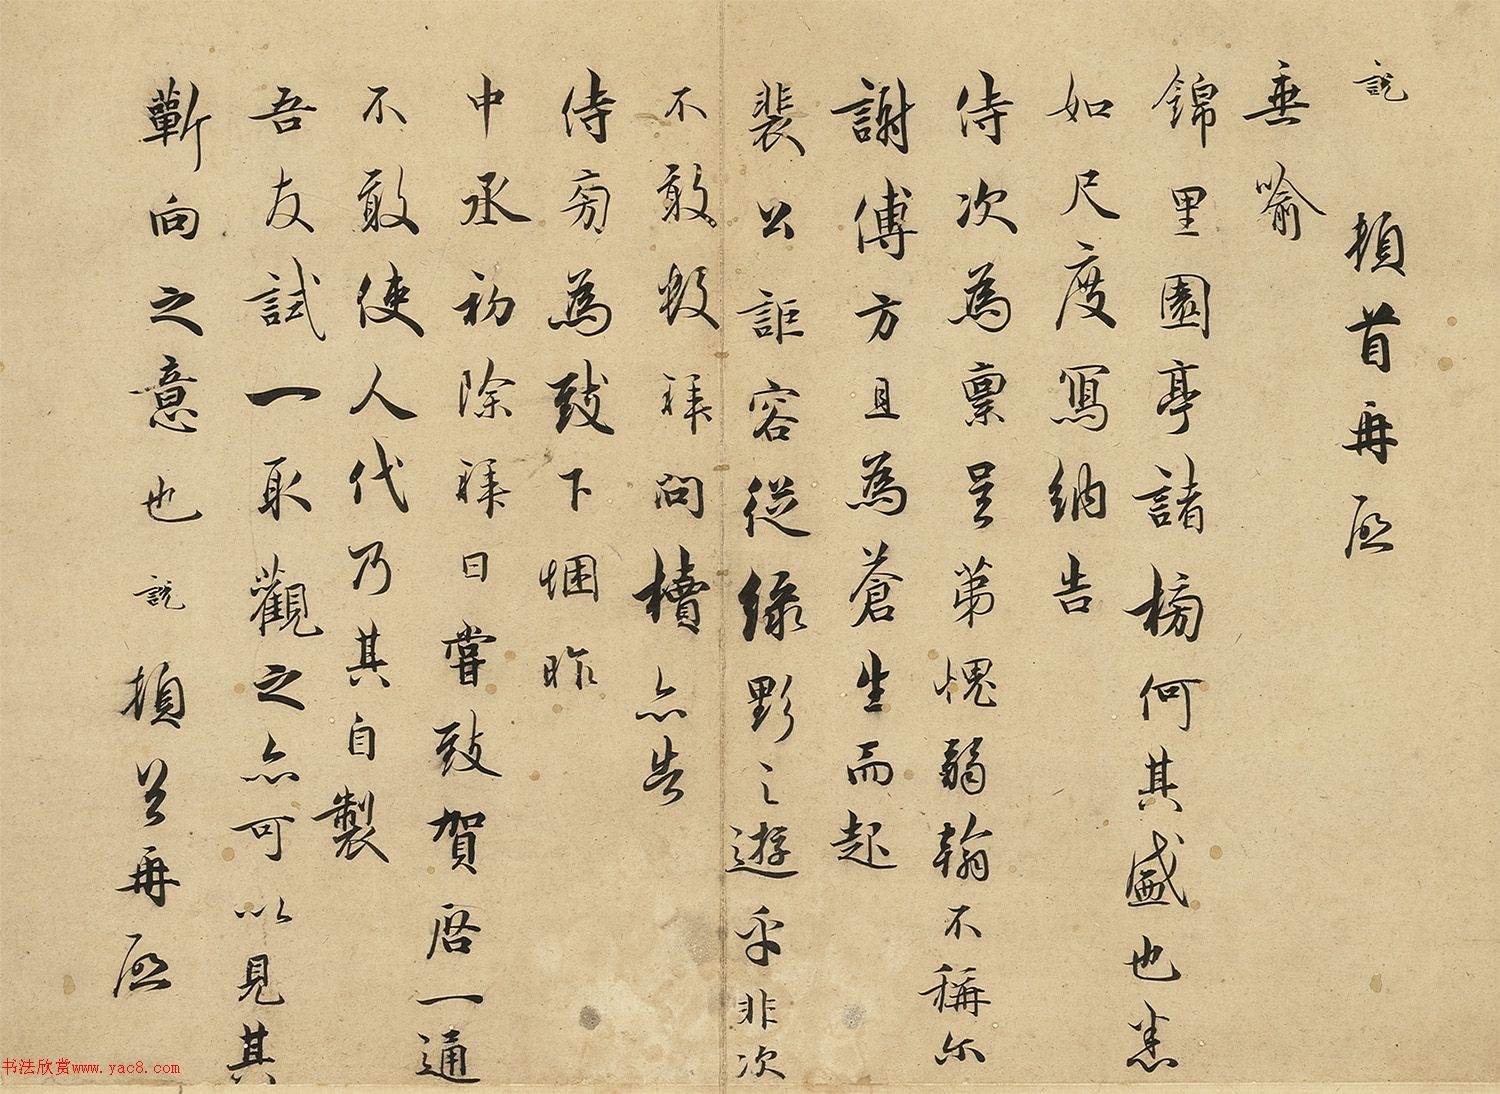 説頓首再啓
垂喻
錦里園亭諸榜何其盛也悉
如尺度寫納告
侍次為稟呈第愧弱翰不稱尔
謝傅方且為蒼生而起
裴公詎容從綠野之遊乎非次
不敢数拜問櫝亦告
侍旁為致下悃昨
中丞初除拜日嘗致賀啓一通
不敢使人代乃其自製
吾友試一取觀之亦可以見其
蘄向之意也説頓首再啓
书法欣赏www.yac8.com